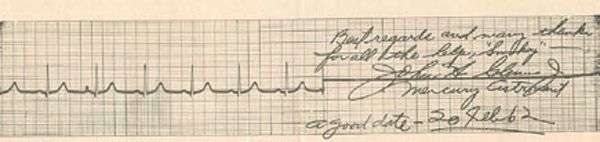 Best regards and many thanks
for all the help, "Smoky"
John H Glenn Jr
Mercury Astronaut
a good date - 20 Feb 62